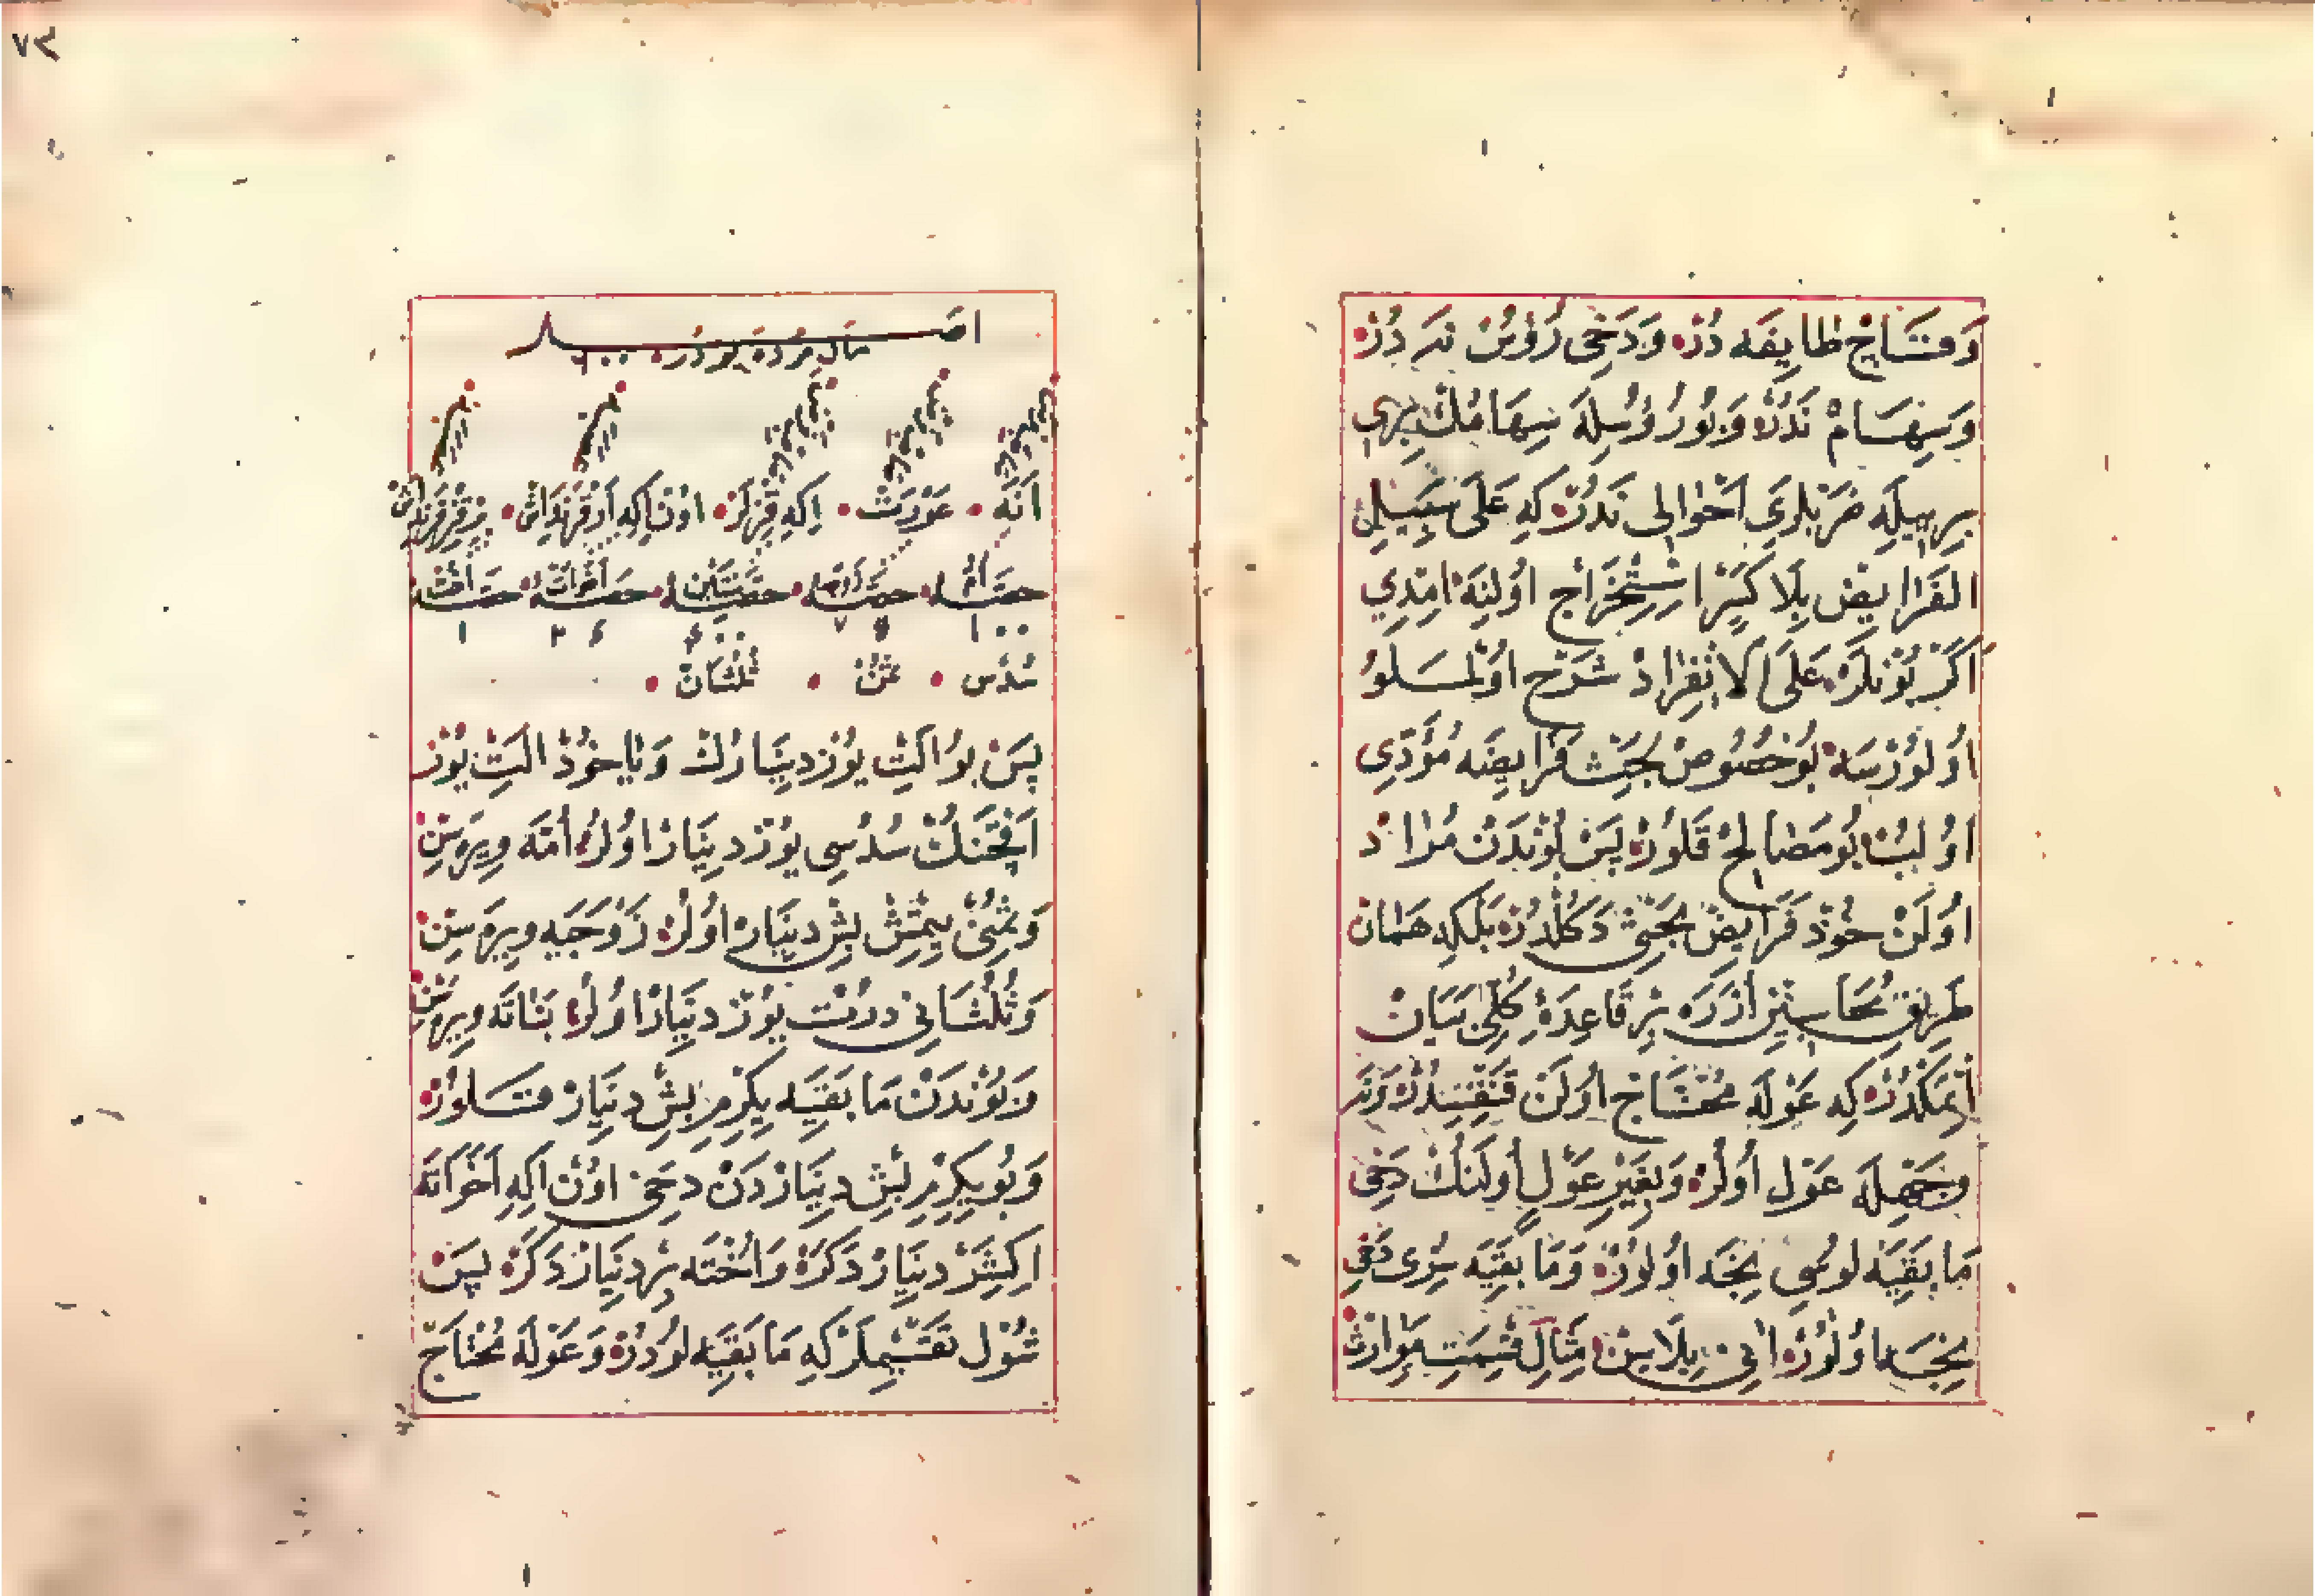 وَقِسَّاحْ طَايِفَه دُرْ وَدَخِى رُؤُسْ نَه دُرْ
وَسِهَامْ نَدُرْ وَبُورُؤُسِلَه سِهَامُكْ بِرِى
بِرِيلَه ضَرْبلَرِى اَحْوَالِى نَدُرْكِه عَلَى سَبِيلِ
الفَرَايِضْ بِلَا كَسْر اِسْتِخْرَاجْ اوُلِنَه اِمْدِي
اَكَرْ بُوْنلَرْ عَلَى الاِنْفِرَادْ شَرْح اوُلْمَسَلُو
اوُلُورْسَه بُوخُصُوصْ بَحْثِ فَرَايِضَه مُؤَدِّى
اوُلُبْ بُومَصَالِحْ قَلُورْ پَسْ بُوْندَنْ مُرَادْ
اوُلَنْ خُوذْ فَرَايِضْ بَحْثِى دَكُلْدُرْ بَلْكِه هَمَانْ
طَرِيقِ مُحَاسِبِينْ اُزَرَه بِرْ قَاعِدَۀ كُلِّى بَيَانْ
اِتْمَكْدُرْكِه عَوْلَه مُحْتَاجْ اوُلَنْ قَنْقِيسِدُرْ وَنَه
وَجْهِلَه عَوْل اوُلُرْ وَبِغَيْرِ عَوْل اوُلَنُكْ دَخِى
مَا بَقِيَه لُوسِى نِجَه اوُلُورْ وَمَا بَقِيَه سِزِى دَخِى
نِجَه اوُلُورْ اَنِى بِلَاسِنْ مِثَالِ قِسْمَتِ مَوَارِثْ
٧٢
اصل
مَالِ مُرْدَه بُودُرْ ٦٠٠
اَنَه • عَوْرَتْ • اِكِه قِزْلَرْ • اوُنْ اِكِه اَرْ قَرِنْدَاشْ • بِرْ قِزْ قَرِنْدَاشْ
حصّه اُمّ • حصّه زوجه • حصّه بنتين • حصّه اخوات • حصّه اخت
١٠٠ ٧٥ ٤٠٠ ٢٤ ١
سُدُس • ثُمْن • ثُلُثَانْ •
پَسْ بُو اَلْتِ يُوزْ دِينَارُكْ وَيَاخُوذْ اَلْتِ يُوزْ
اَقْچَنُكْ سُدُسِى يُوزْ دِينَارْ اوُلُرْ اُمَّه وِيرَسِنْ
وَثُمْنِى يِتْمِشْ بِشْ دِينَارْ اوُلُرْ زَوْجَيَه وِيرَسِنْ
وَثُلُثَانِى دُرْتْ يُوزْ دِينَارْ اوُلُرْ بَنَاتَه وِيرَسِنْ
وَبُوْندَنْ مَا بَقِيَه يِكِرْمِ بِشْ دِينَارْ قَالُورْ
وَبُو يِكِرْمِ بِشْ دِينَارْدَنْ دَخِى اوُنْ اِكِه اَخَوَاتَه
اِكِشَرْ دِينَارْ دَكَرْ وَاُخْتَه بِرْ دِينَارْ دَكَرْ پَسْ
شُوْل تَقْسِيمْلَرْكِه مَا بَقِيَه لُودُرْ وَعَوْلَه مُحْتَاجْ